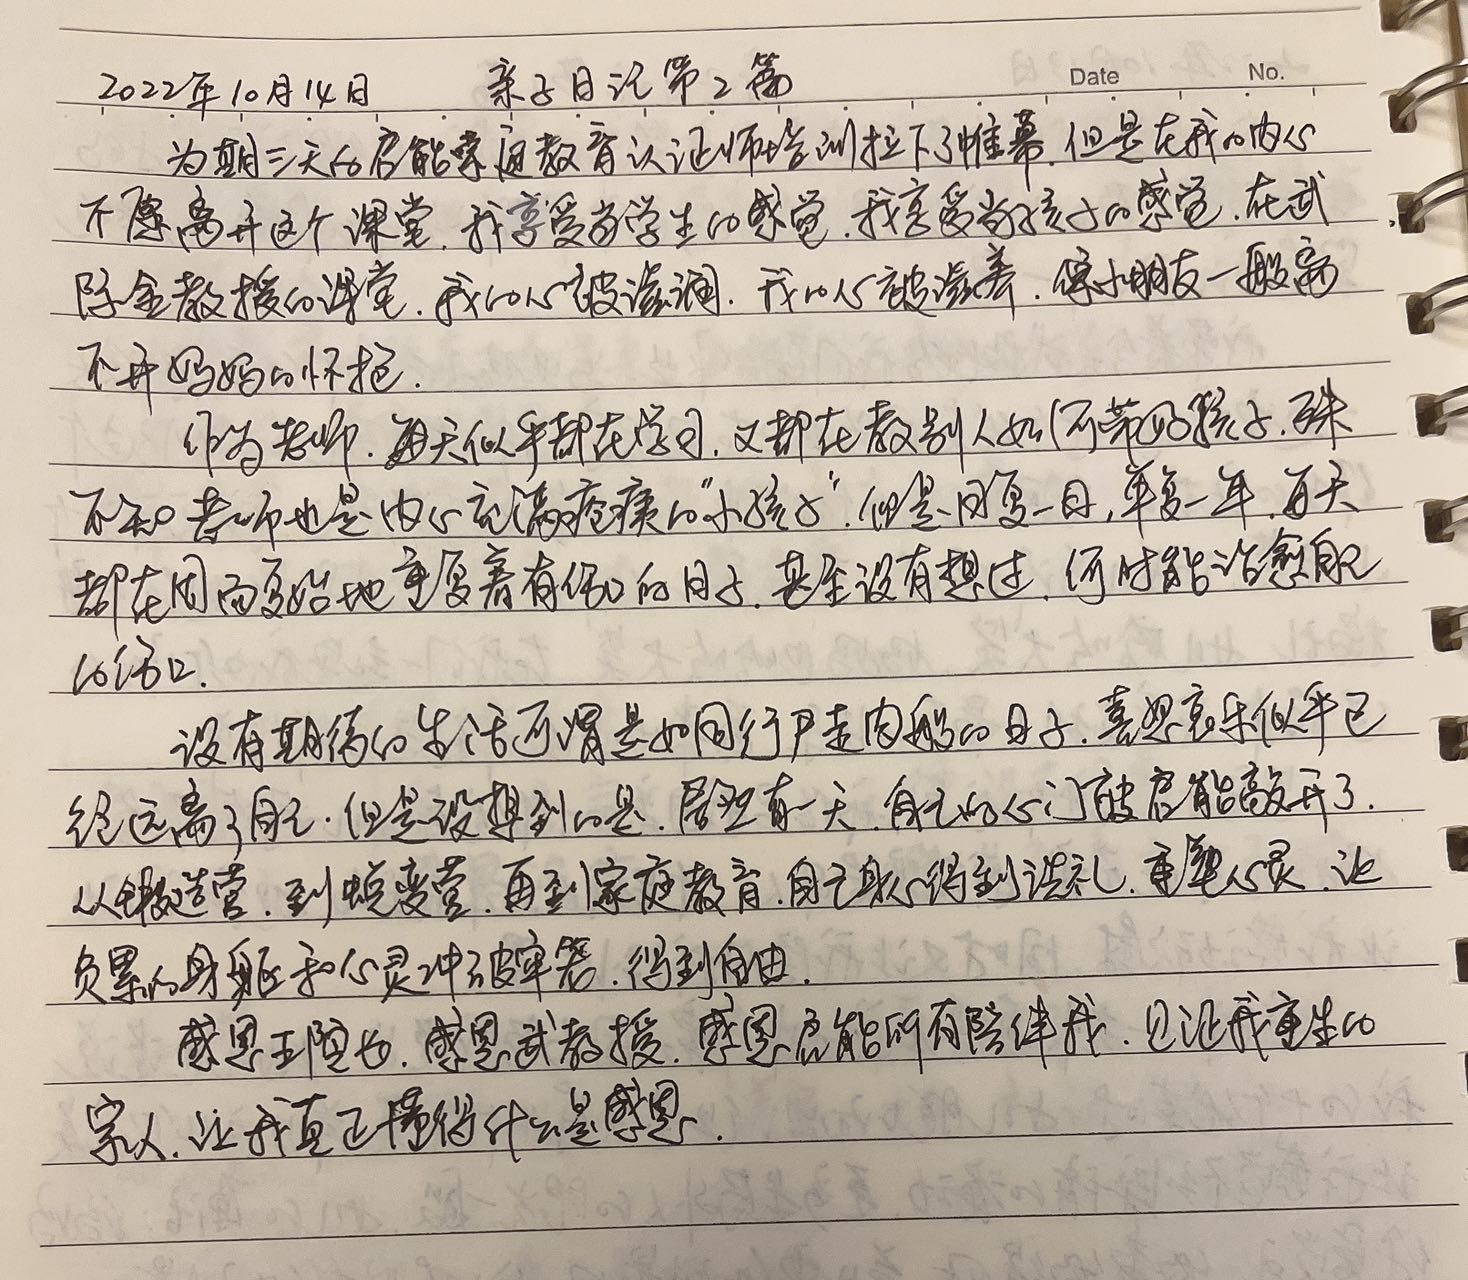 2022年10月14日 亲子日记第2篇
Date No.
为期三天的启能家庭教育认证师培训拉下了帷幕,但是在我的内心
不愿离开这个课堂,我享受当学生的感觉,我享受当孩子的感觉,在武
际金教授的课堂,我的心被滋润,我的心被滋养,像小朋友一般离
不开妈妈的怀抱.
作为老师,每天似乎都在学习,又都在教别人如何带好孩子,殊
不知老师也是内心充满疮痍的“小孩子”,但是日复一日,年复一年,每天
都在周而复始地重复着有伤口的日子,甚至没有想过,何时能治愈自己
的伤口.
没有期待的生活可谓是如同行尸走肉般的日子,喜怒哀乐似乎已
经远离了自己.但是没想到的是,居然有一天,自己的心门被启能敲开了.
从锻造营,到蜕变营,再到家庭教育,自己身心得到洗礼,重塑心灵,让
负累的身躯和心灵冲破牢笼,得到自由.
感恩王院长,感恩武教授,感恩启能所有陪伴我,见证我重生的
家人,让我真正懂得什么是感恩.